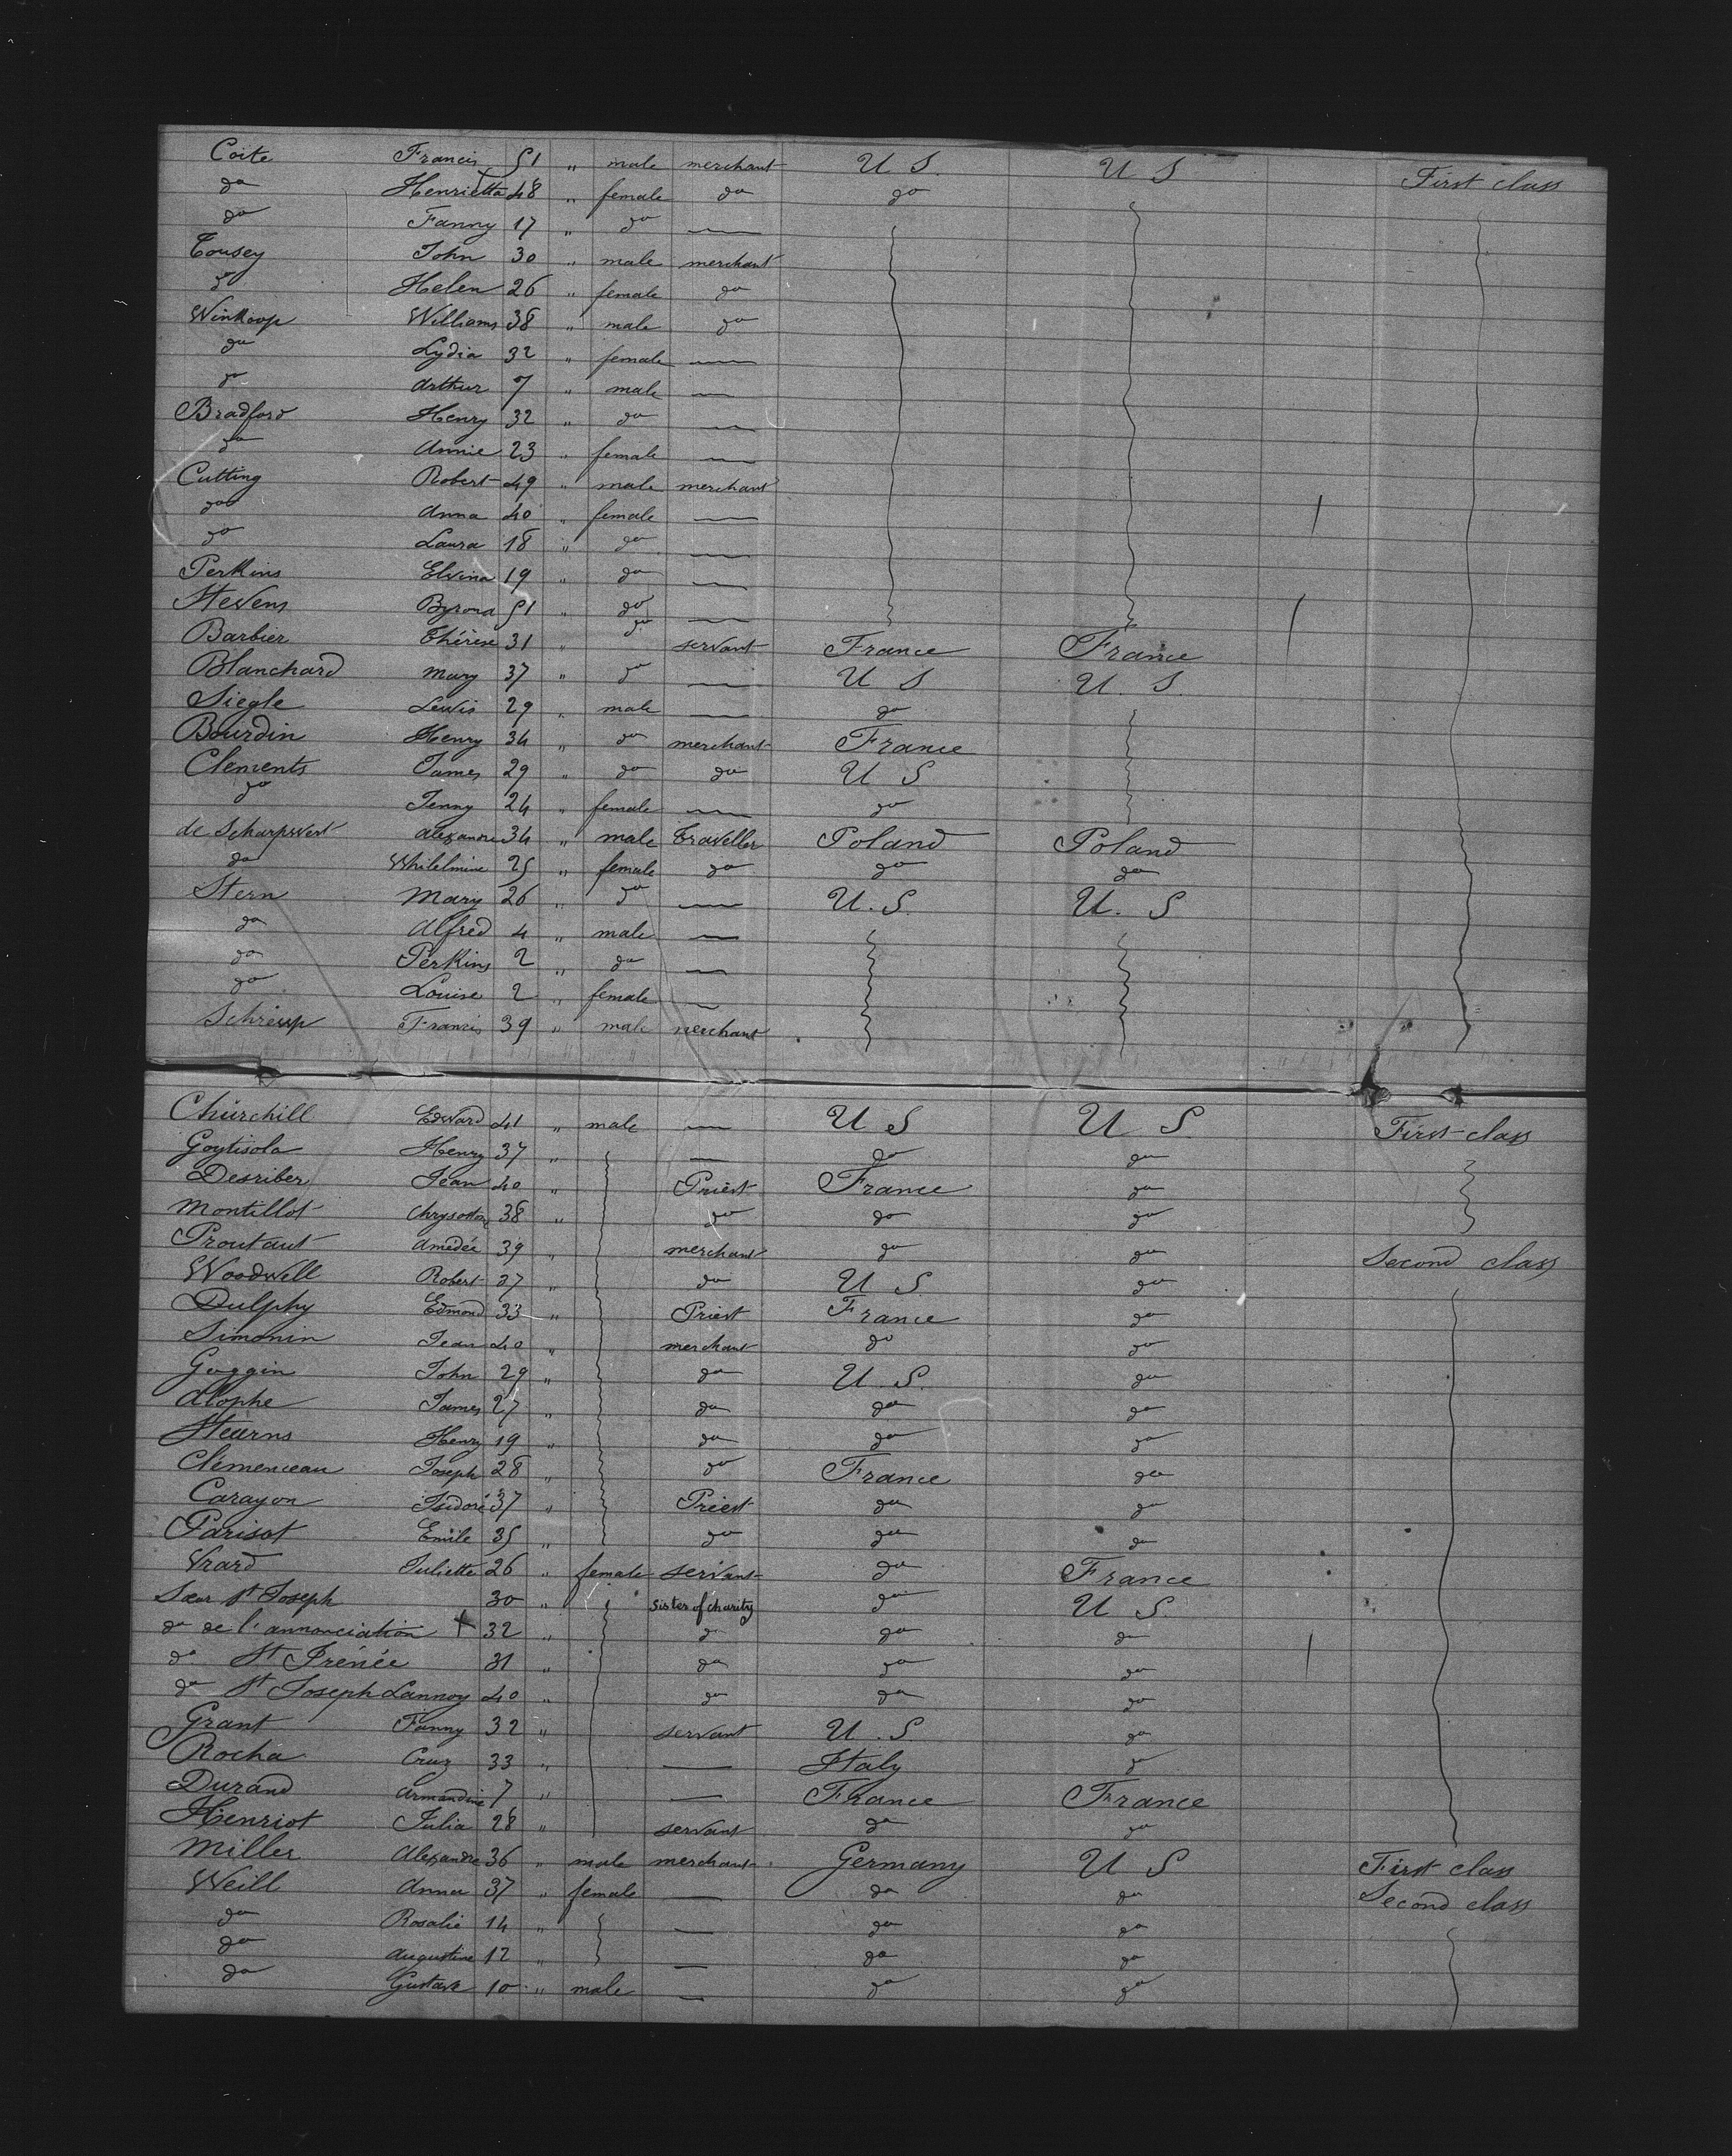 Coite Francis 51 " male merchant U S. U S First class
do Henrietta 48 " female do do
do Fanny 17 " do —
Tousey John 30 " male merchant
do Helen 26 " female do
Winkoop Williams 38 " male do
do Lydia 32 " female —
do Arthur 7 " male —
Bradford Henry 32 " do —
do Annie 23 " female —
Cutting Robert 49 " male merchant
do Anna 40 " female —
do Laura 18 " do —
Perkins Elvina 19 " do —
Stevens Byrona 51 " do —
Barbier Thérèse 31 " do servant France France
Blanchard Mary 37 " do — U S U. S.
Siegle Lewis 29 " male — do
Bourdin Henry 34 " do merchant France
Clements James 29 " do do U S
do Jenny 24 " female — do
de Scharpwert Alexandre 34 " male Traveller Poland Poland
do Whilelmine 25 " female do do do
Stern Mary 26 " do — U. S. U. S
do Alfred 4 " male —
do Perkins 2 " do —
do Louise 2 " female —
Francis 39 " male merchant
Churchill Edward 41 " male — U S U S. First class
Goytisola Henry 37 " — do do
Desriber Jean 40 " Priest France do
Montillot Chrysostome 38 " do do do
Proutaut Amédée 39 " merchant do do Second class
Woodwell Robert 37 " do U S do
Dulphy Edmond 33 " Priest France do
Simonin Jean 40 " merchant do do
Goggin John 29 " do U. S. do
Alophe James 27 " do do do
Stearns Henry 19 " do do do
Clémenceau Joseph 28 " do France do
Carayon Isidore 37 " Priest do do
Parisot Emile 35 " do do do
Vrard Juliette 26 " female servant do France
Sœur St Joseph 30 " sister of charity do U S.
do de l'annonciation + 32 " do do do
do St Irénée 31 " do do do
do St Joseph Lannoy 40 " do do do
Grant Fanny 32 " servant U. S. do
Rocha Cruz 33 " — Italy do
Durand Armandine 7 " — France France
Henriot Julia 28 " servant do do
Miller Alexandre 36 " male merchant Germany U S First class
Weill Anna 37 " female — do do Second class
do Rosalie 14 " — do do
do Augustine 12 " — do do
do Gustave 10 " male — do do